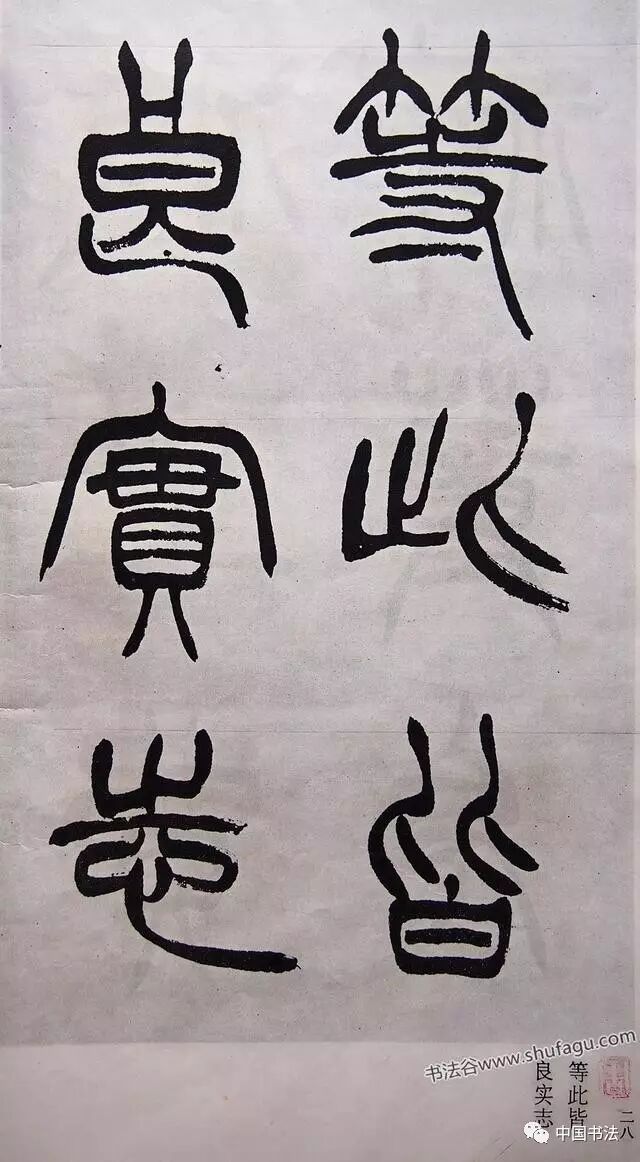 等此皆
良實志
书法谷www.shufagu.com
等此皆
良实志
二八
中国书法